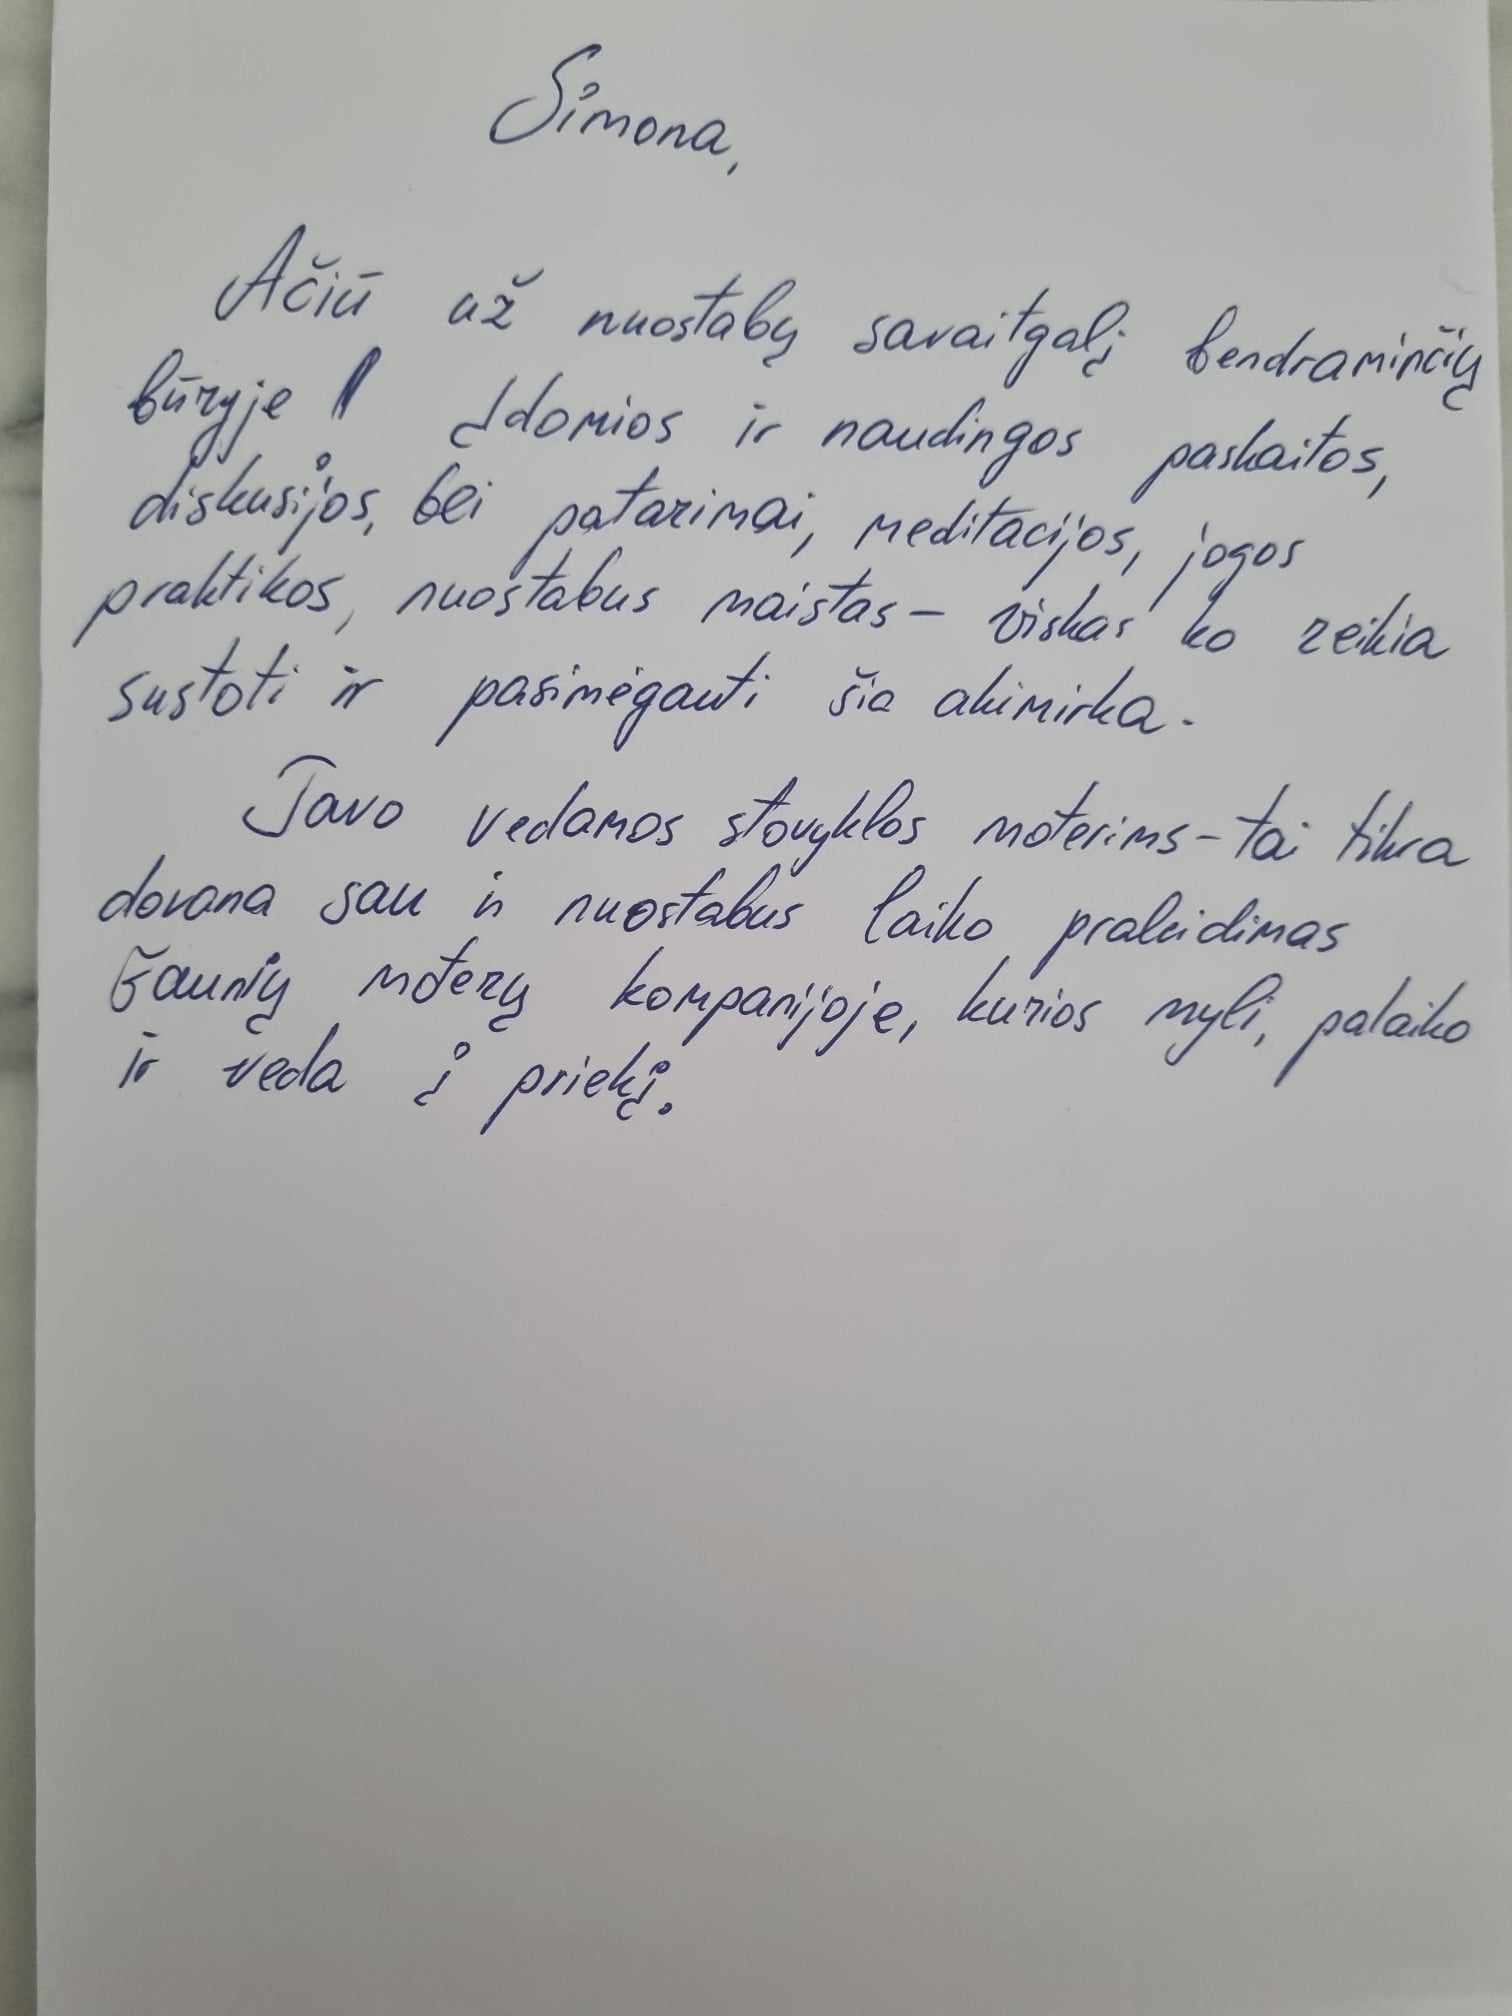 Simona,
Ačiū už nuostabų savaitgalį bendraminčių
būryje! Įdomios ir naudingos paskaitos,
diskusijos, bei patarimai, meditacijos, jogos
praktikos, nuostabus maistas – viskas ko reikia
sustoti ir pasimėgauti šia akimirka.
Tavo vedamos stovyklos moterims – tai tikra
dovana sau ir nuostabus laiko praleidimas
šaunių moterų kompanijoje, kurios myli, palaiko
ir veda į priekį.